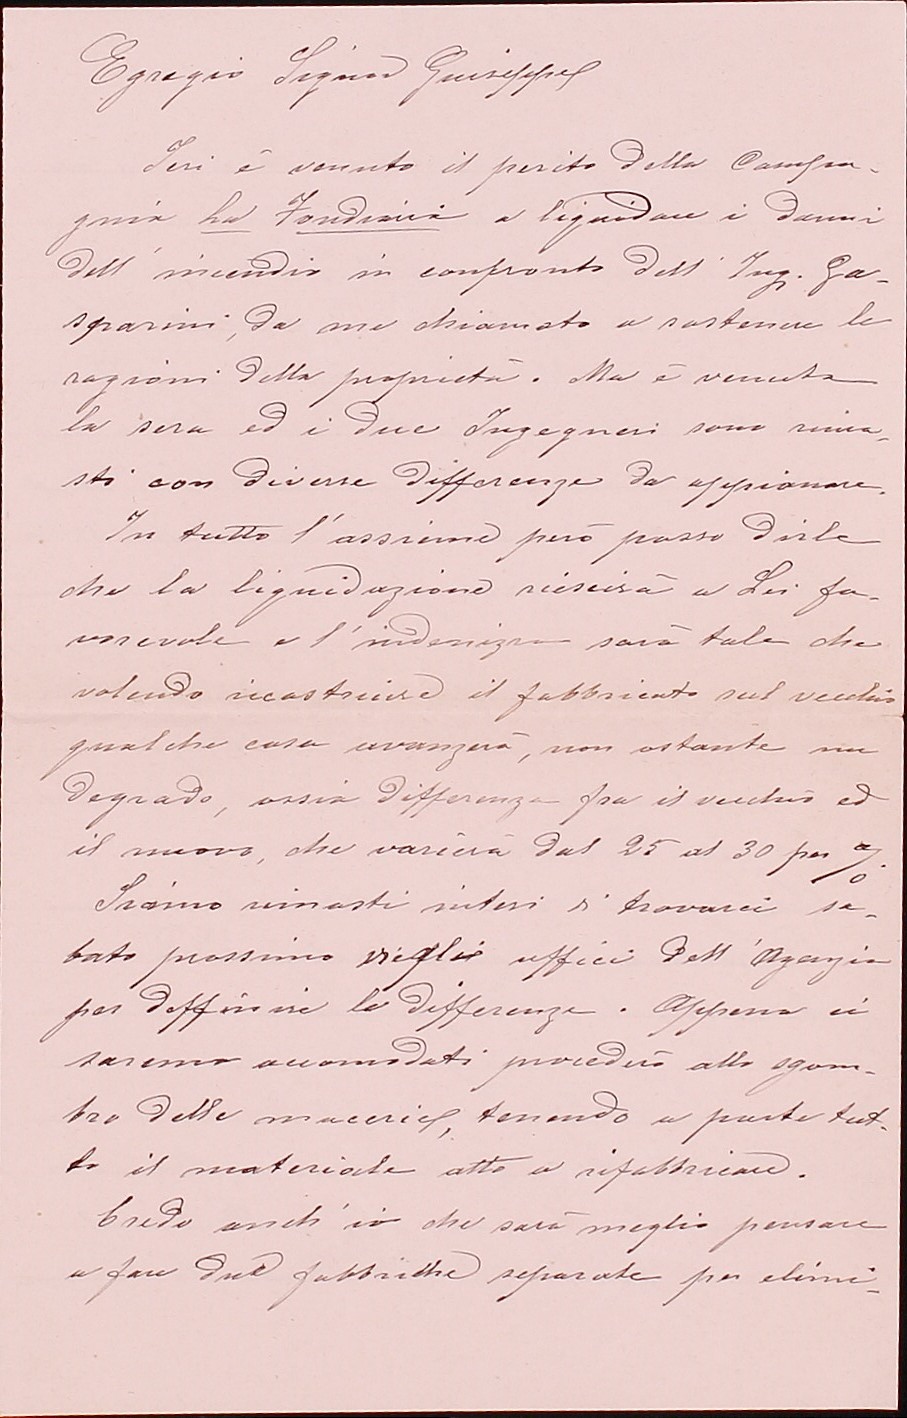 Egregio Signor Giuseppe
Ieri è venuto il perito della Compa-
gnia La Fondiaria a liquidare i danni
dell'incendio in confronto dell'Ing. Ga-
sparini, da me chiamato a sostenere le
ragioni della proprietà. Ma è venuta
la sera ed i due Ingegneri sono rima-
sti con diverse differenze da appianare.
In tutto l'assieme però posso dirle
che la liquidazione riescirà a Lei fa-
vorevole e l'indenizzo sarà tale che
volendo ricostruire il fabbricato sul vecchio
qualche cosa avanzerà, non ostante un
degrado, ossia differenza fra il vecchio ed
il nuovo, che varierà dal 25 al 30 per %.
Siamo rimasti intesi di trovarci sa-
bato prossimo negli uffici dell'Agenzia
per deffinire le differenze. Appena ci
saremo accomodati procederò allo sgom-
bro delle macerie, tenendo a parte tut-
to il materiale atto a rifabbricare.
Credo anch'io che sarà meglio pensare
a fare due fabbriche separate per elimi-